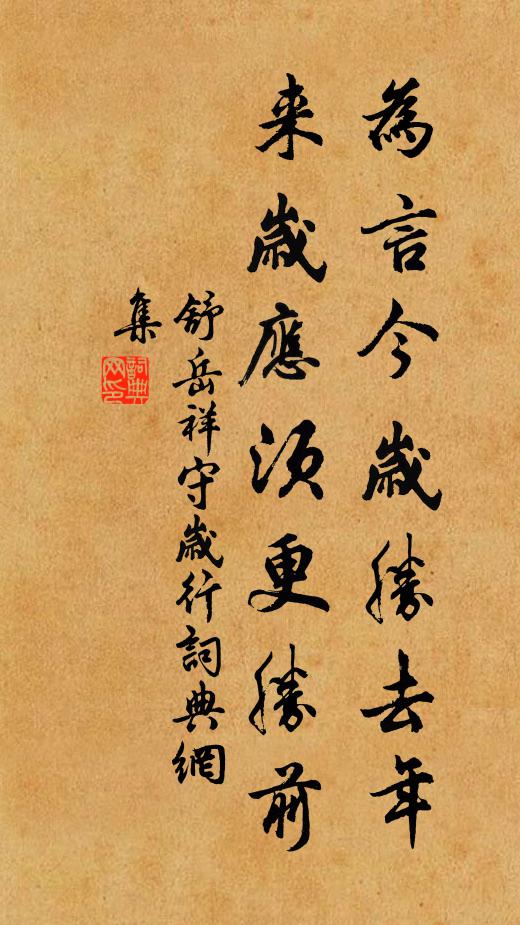 為言今歲勝去年
来歲應須更勝前
舒岳祥守歲行詞典網
集
詞典
网印